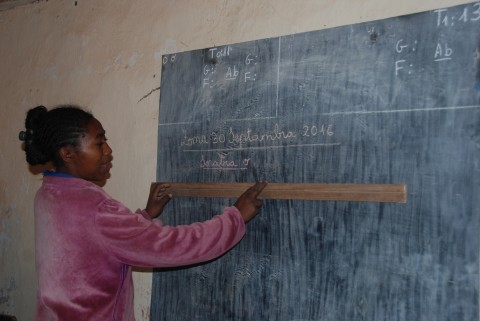 Tour
G: Ab G:
F: F:
T1:13
G: Ab
F:
Zoma 30 Septambra 2016
Soratra o